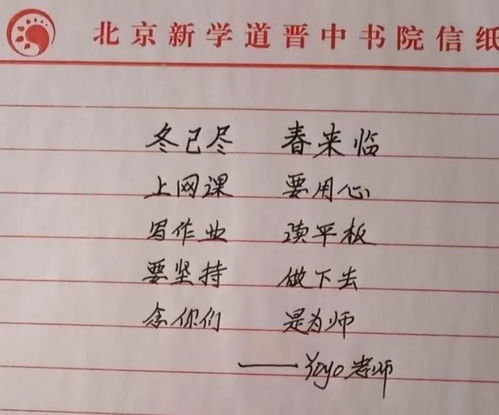 北京新学道晋中书院信纸
冬已尽 春来临
上网课 要用心
写作业 读平板
要坚持 做下去
念你们 是为师
——yoyo老师